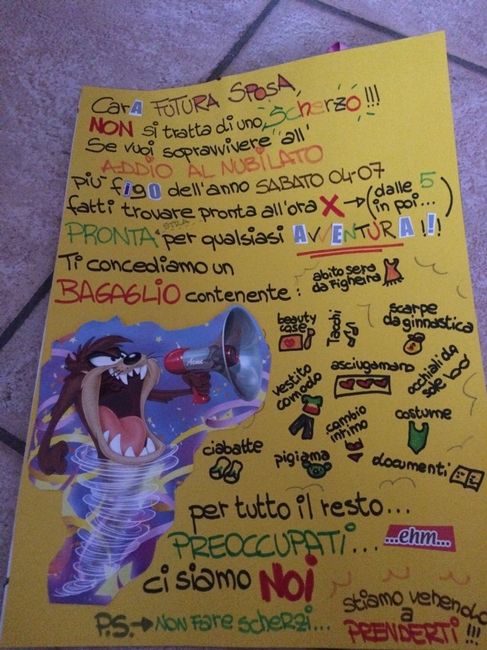 CarA FUTURA SPOSA,
NON si tratta di uno Scherzo!!!
Se vuoi sopravvivere all'
ADDIO AL NUBILATO
più figo dell'anno SABATO 04-07
fatti trovare pronta all'ora X → (dalle 5 in poi...)
STRA
PRONTA per qualsiasi AVVENTURA!!!
Ti concediamo un
BAGAGLIO contenente:
abito sera da Figheira
beauty case
Tacchi
scarpe da ginnastica
vestito comodo
asciugamano
occhiali da sole
cambio intimo
costume
ciabatte
pigiama
documenti
Acme
per tutto il resto...
PREOCCUPATI... ...ehm...
ci siamo NOI
P.S. → NON FARE Scherzi...
stiamo venendo
a
PRENDERTI!